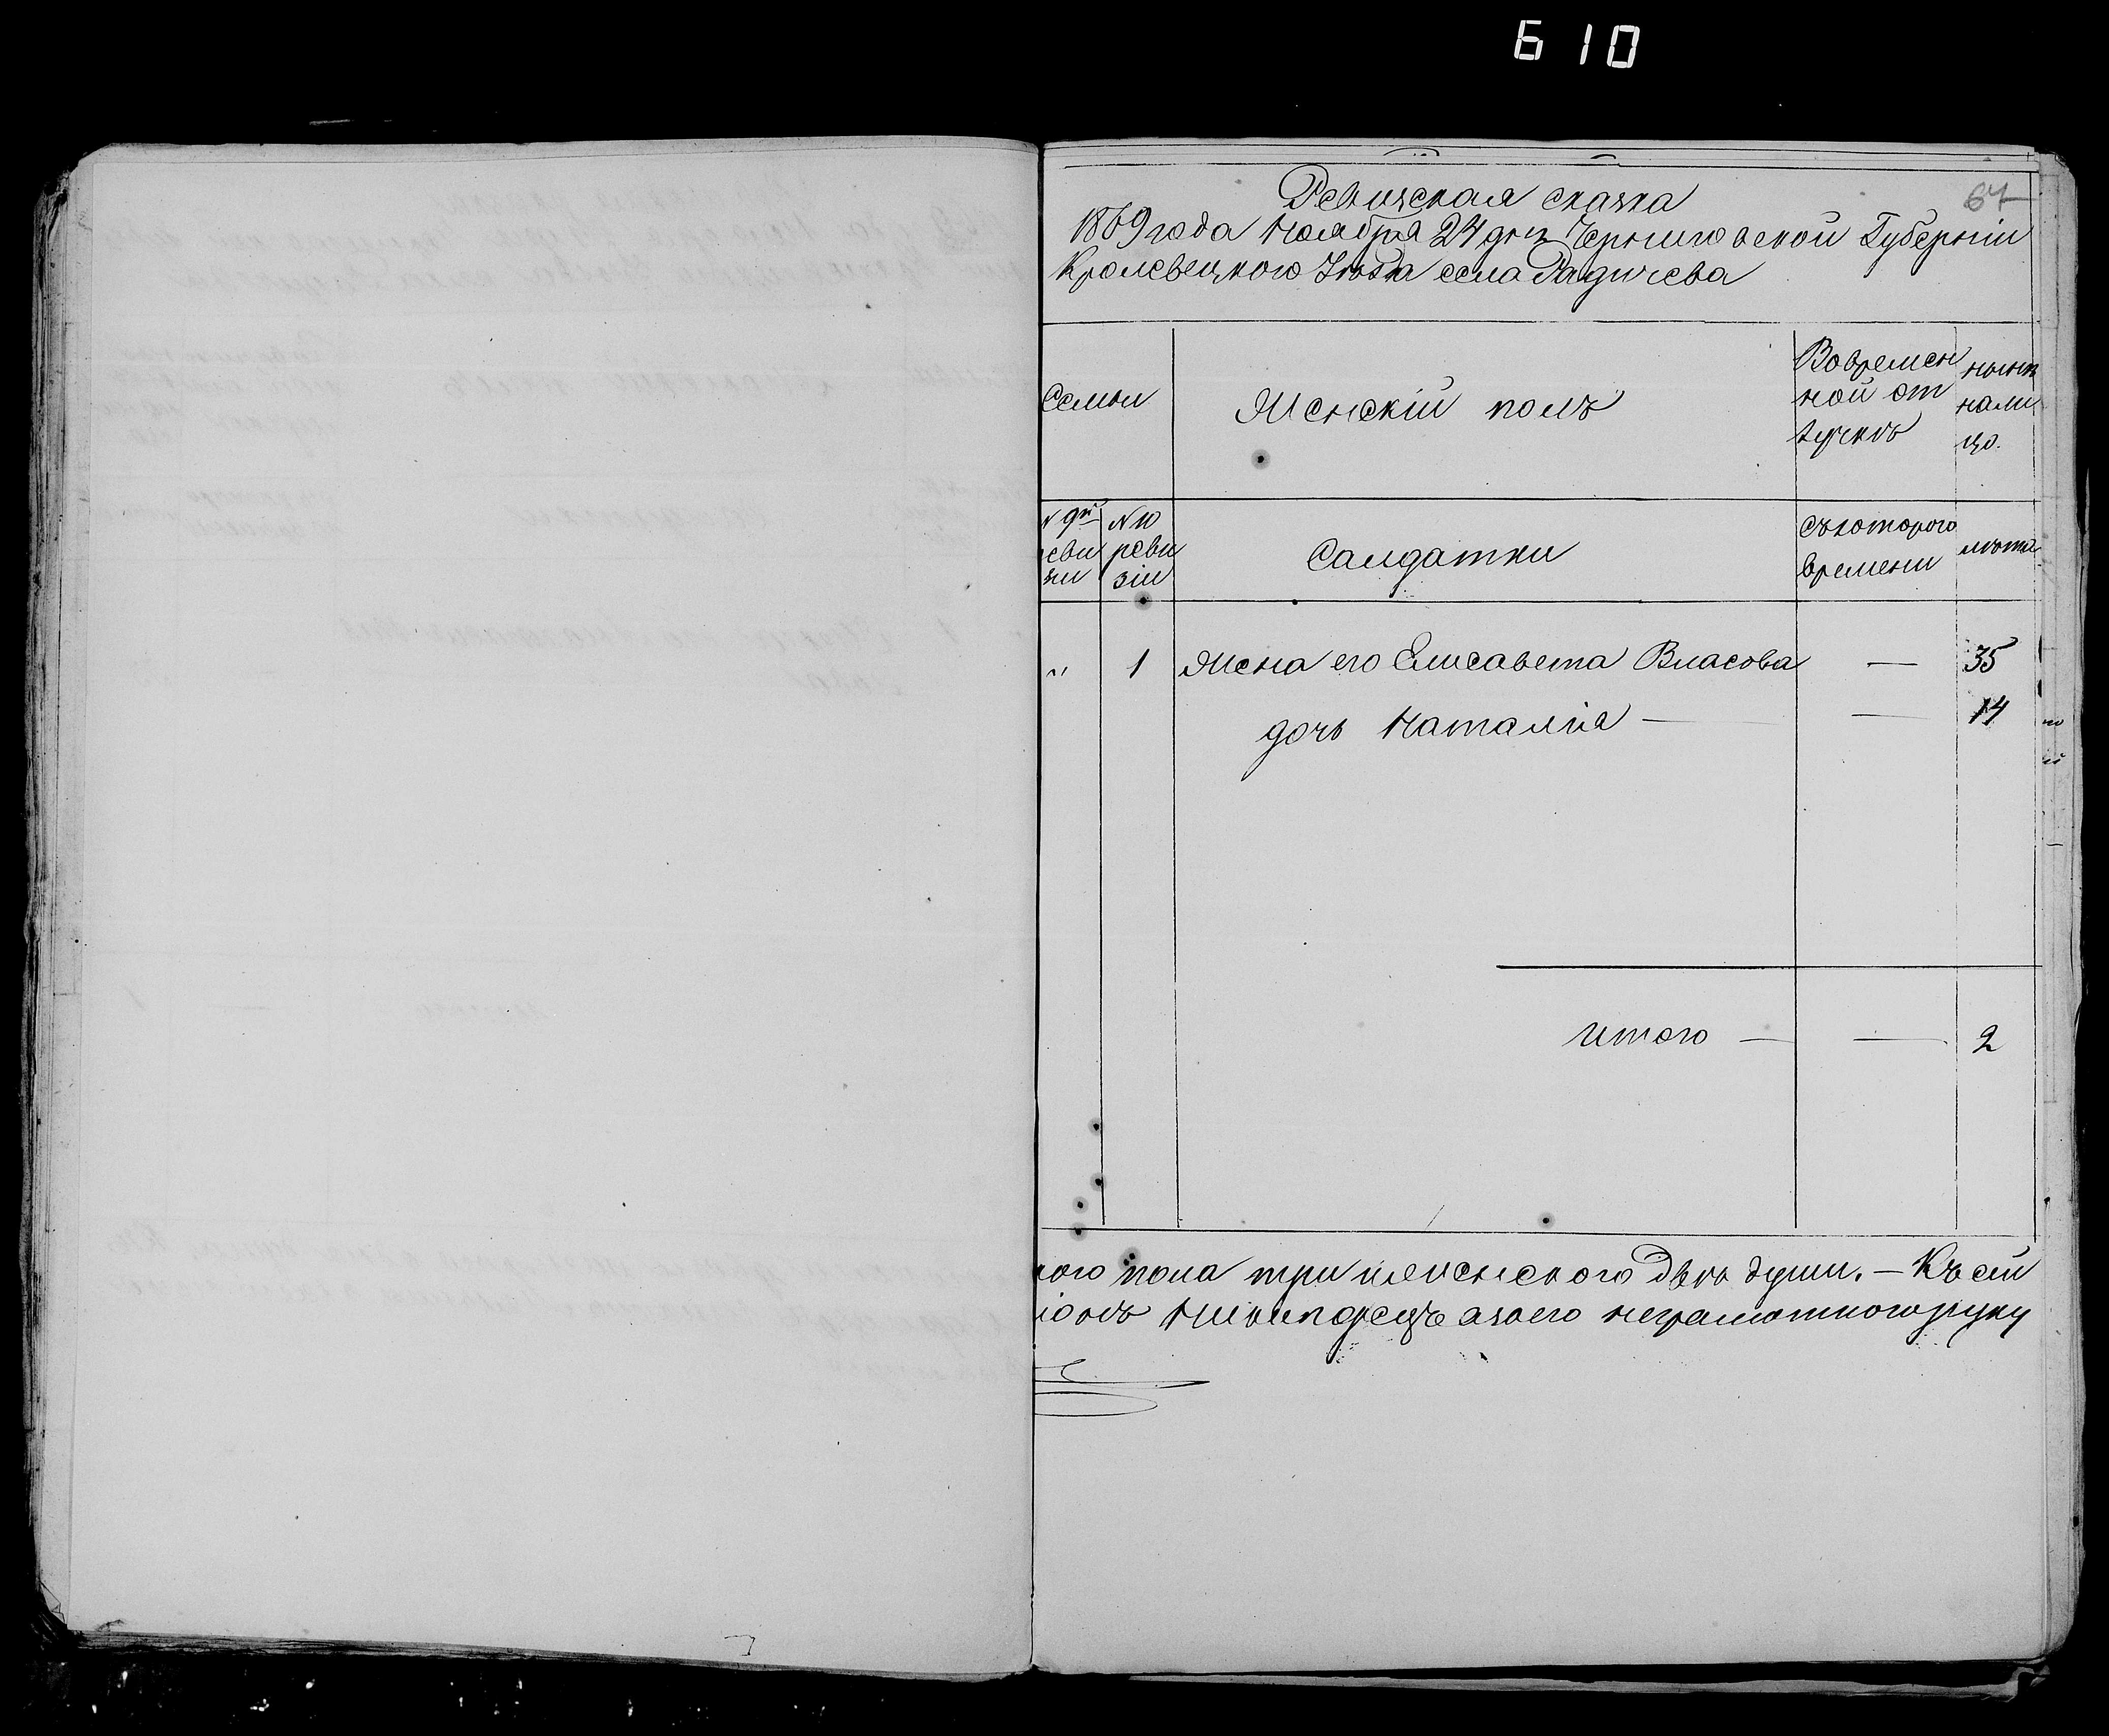 610
67
Ревизская сказка
1869 года Ноября 24 дня Черниговской Губерніи
Кролевецкого Уезда села Радичева
Семьи
Женскій полъ
Вовремен
ной от
лучкѣ
нынѣ
нали
цо.
N
еви
зіи
N 10
реви
зіи
Салдатки
съкоторого
времени
лѣта
" 1 Жена его Елисавета Власова — 35
дочь Наталія — — 14
итого — — 2
кого пола три иженского двѣ души. — Къ сей
Никипорецъ азаего неграмотного руку